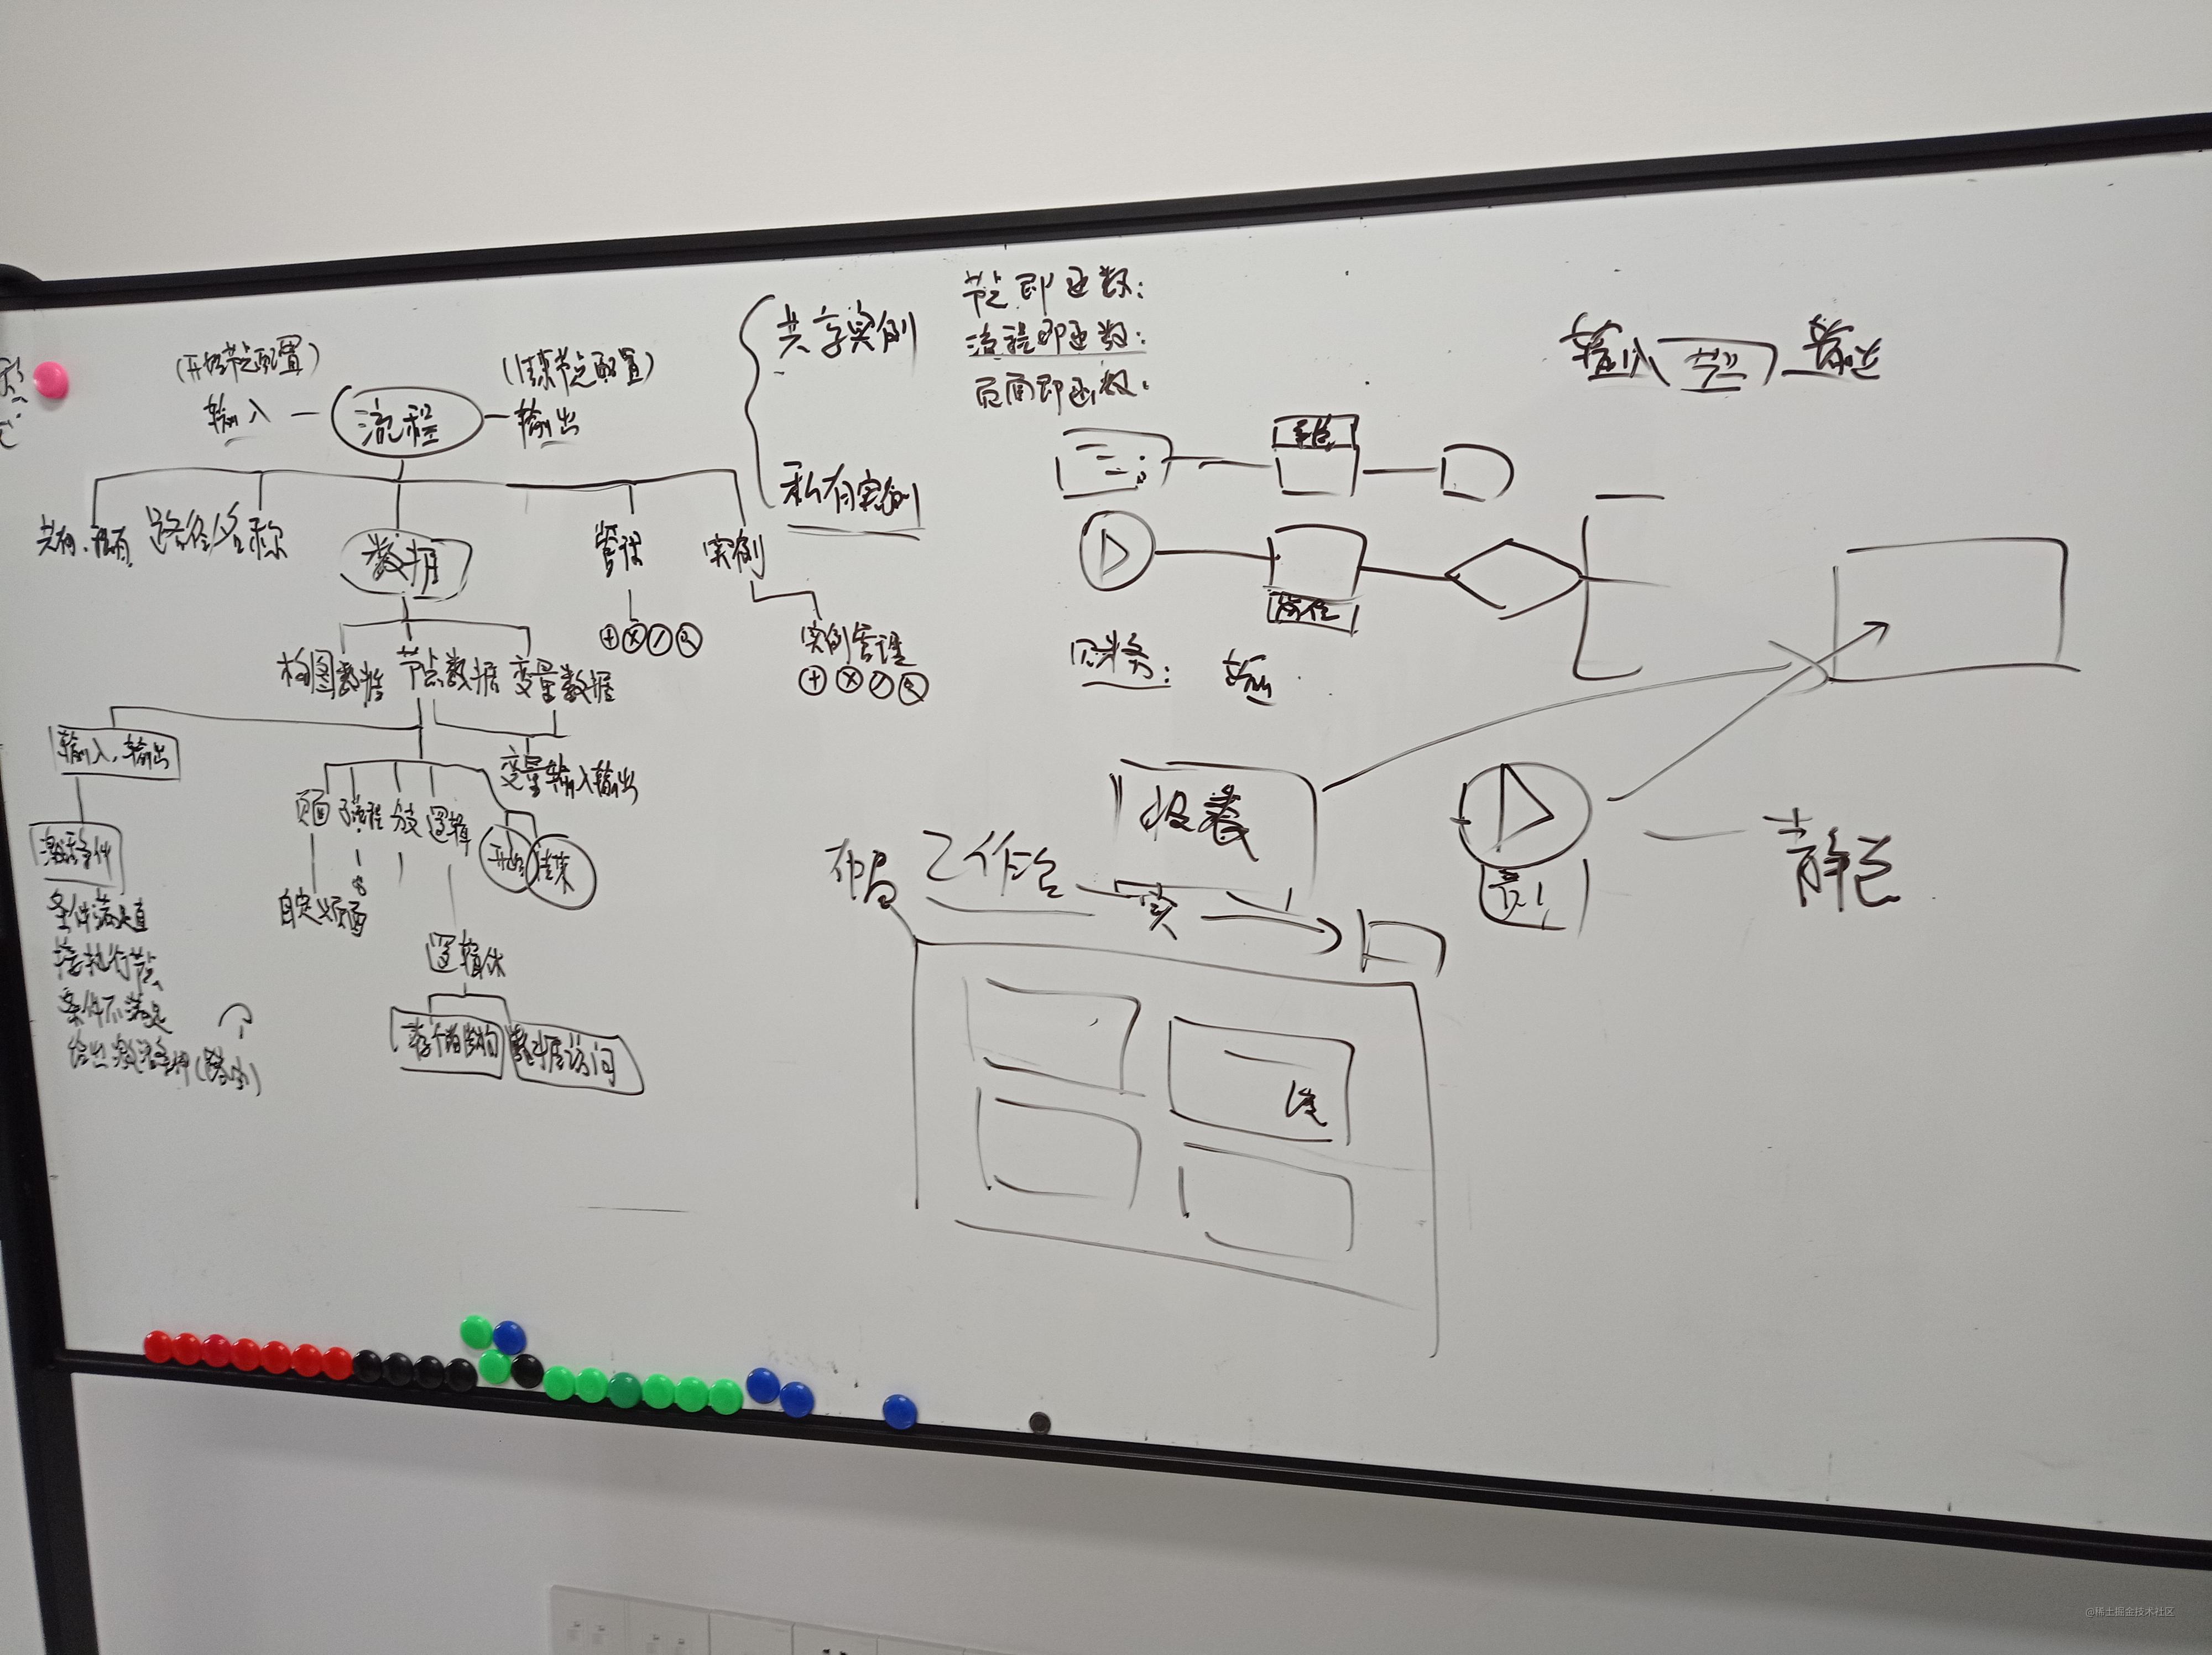 (开始节点配置)
(结束节点配置)
输入
流程
输出
共有.私有
路径/名称
数据
管理
实例
构图数据
节点数据
变量数据
实例管理
输入.输出
变量输入输出
页面
子流程
分支
逻辑
开始
结束
激活条件
自定义页面
条件满足直
接执行节点
条件不满足
给出激活条件(
逻辑体
存储结构
数据访问
共享实例
私有实例
节点即函数:
流程即函数:
页面即函数:
输入
节点
输出
报表
布局
工作台
@稀土掘金技术社区